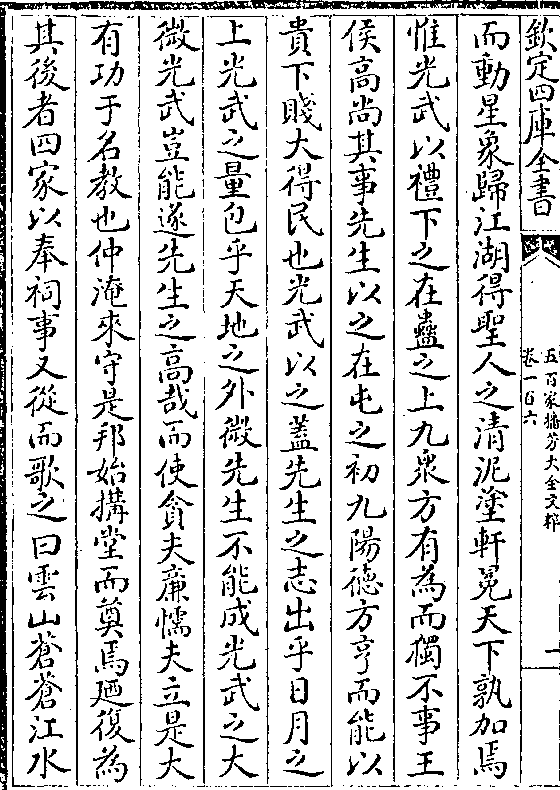 欽定四庫全書
五百家播芳大全文粹
卷一百六
而動星象歸江湖得聖人之清泥塗軒冕天下孰加焉
惟光武以禮下之在蠱之上九衆方有為而獨不事王
侯高尚其事先生以之在屯之初九陽德方亨而能以
貴下賤大得民也光武以之蓋先生之志出乎日月之
上光武之量包乎天地之外微先生不能成光武之大
微光武豈能遂先生之高哉而使貪夫廉懦夫立是大
有功于名教也仲淹來守是邦始搆堂而奠焉廼復為
其後者四家以奉祠事又從而歌之曰雲山蒼蒼江水